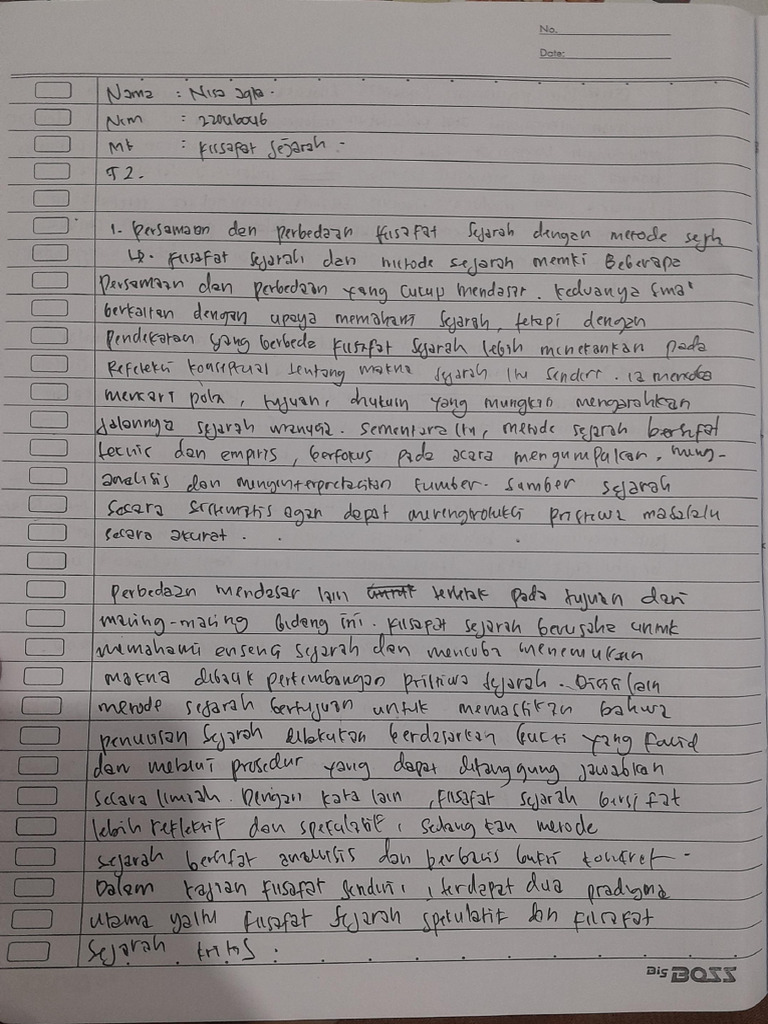 No.
Date:
Nama : Nisa
Nim : 22046046
Mk : Filsafat Sejarah -
T2.
1. persamaan dan perbedaan filsafat sejarah dengan metode sejh
↳. filsafat sejarah dan metode sejarah memki Beberapa
persamaan dan perbedaan yang cukup mendasar. keduanya sma"
berkaitan dengan upaya memahami sejarah, tetapi dengan
Pendekatan yang berbeda filsafat sejarah lebih menekankan pada
Refleksi konseptual tentang makna sejarah itu sendiri. ia mereka
mencari pola, tujuan, hukum yang mungkin mengarahkan
Jalannya sejarah manusia. sementara itu, metode sejarah bersifat
teknis dan empiris, berfokus pada acara mengumpulkan, meng-
analisis dan menginterpretasikan sumber-sumber sejarah
Secara sistematis agar dapat merengtrolukti pristiwa masalalu
secara akurat.
perbedaan mendasar lain terletak pada tujuan dari
masing-masing bidang ini. filsafat sejarah berusaha untuk
memahami esensi sejarah dan mencoba menemukan
makna dibalik perkembangan pristiwa sejarah. Disisi lain
metode sejarah bertujuan untuk memastikan bahwa
penulisan sejarah dilakukan berdasarkan bukti yang falid
dan melalui prosedur yang dapat ditanggung jawabkan
secara ilmiah. Dengan kata lain, filsafat sejarah bersifat
lebih reflektif dan spekulatif, sedangkan metode
sejarah bersifat analisis dan berbasis bukti konkret-
Dalam kajian filsafat sendiri, terdapat dua pradigma
utama yaitu filsafat sejarah spekulatif dan filsafat
sejarah kritis.
Big BOSS